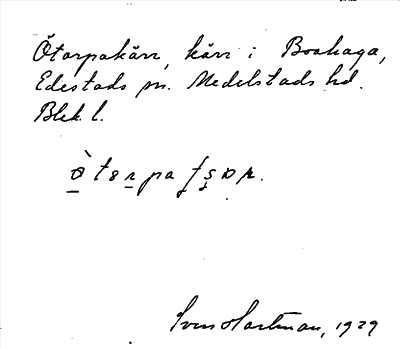 Ötorpakärr, kärr i Boahaga,
Edestads sn. Medelstads hd.
Blek. l.
Sven Hartman, 1929